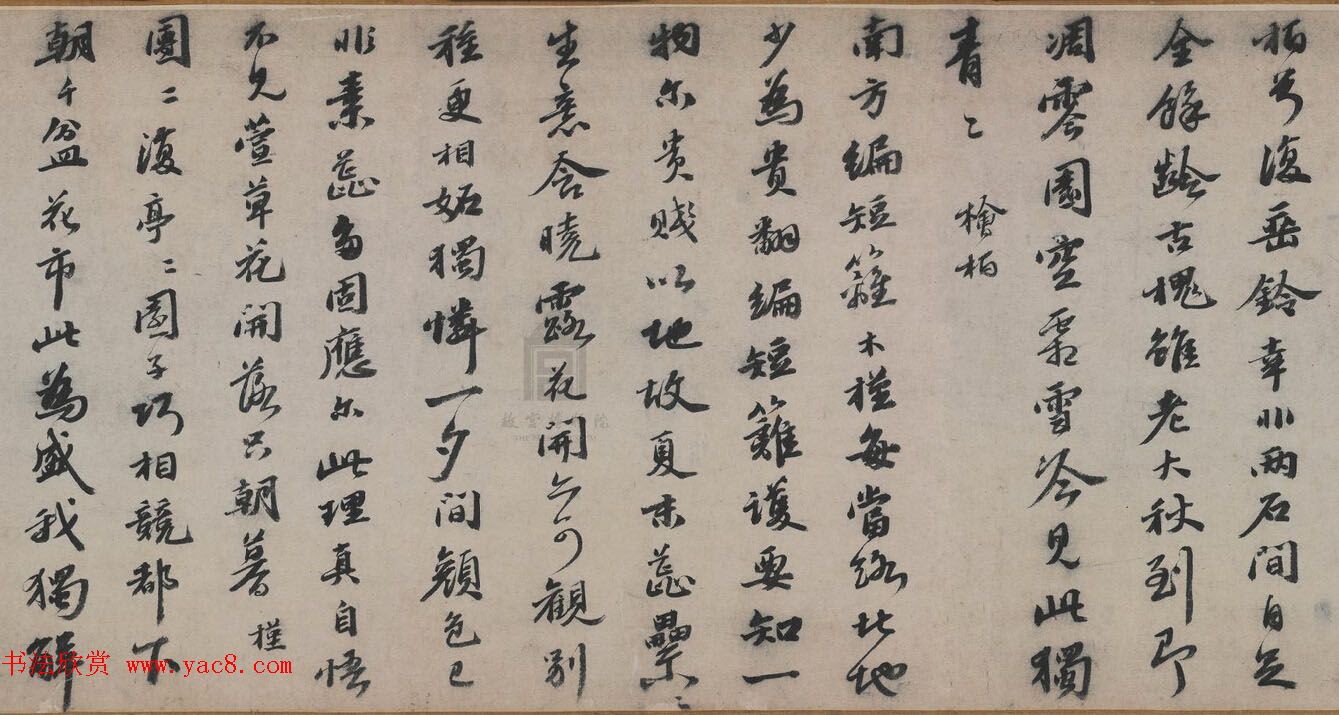 柏復垂鈴幸非兩石間自足
全餘齡古槐雖老大秋到即
凋零園空霜雪冷見此獨
青〻 檜柏
南方編短籬木槿每當路北地
少為貴翻編短籬護要知一
物尔貴賤以地故夏末蕊纍〻
生意含曉露花開亦可觀別
種更相妬獨憐一夕間顏色已
非素蕊多固應尔此理真自悟
不見萱草花開落只朝暮 槿
團〻復亭〻園子巧相競都下
朝千盆花市此為盛我獨解
故宮博物院
书法欣赏 www.yac8.com